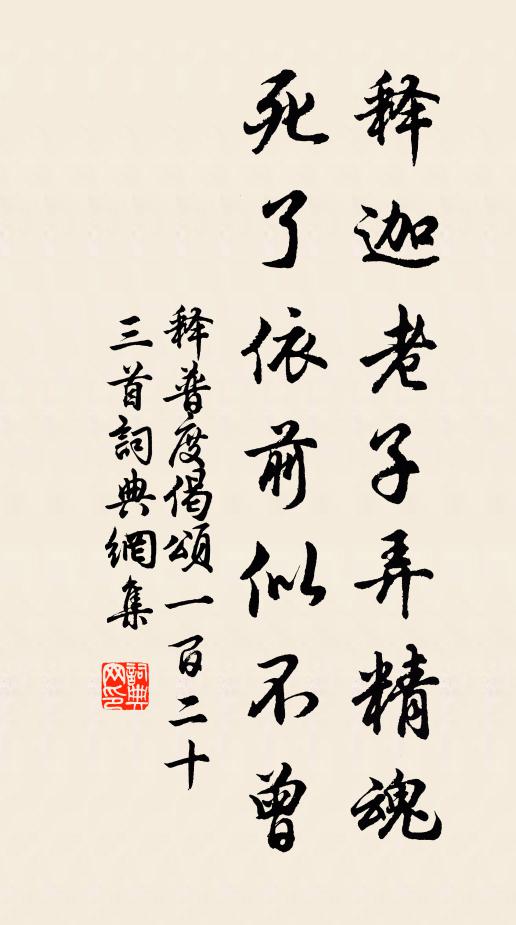 释迦老子弄精魂
死了依前似不曾
释普度偈頌一百二十
三首詞典網集
詞典
网印